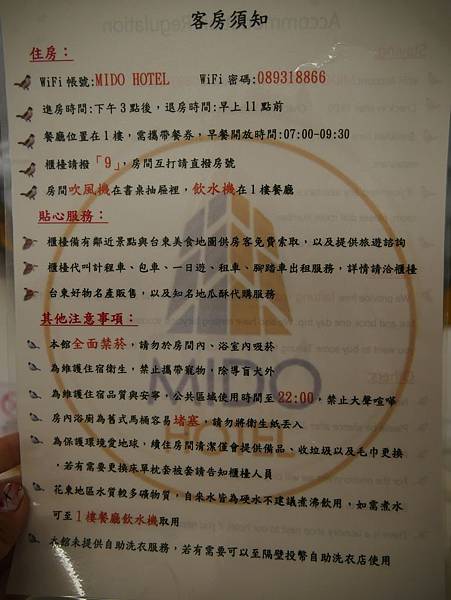 客房須知
住房：
WiFi 帳號:MIDO HOTEL WiFi 密碼:089318866
進房時間:下午 3 點後，退房時間:早上 11 點前
餐廳位置在 1 樓，需攜帶餐券，早餐開放時間:07:00-09:30
櫃檯請撥「9」，房間互打請直撥房號
房間吹風機在書桌抽屜裡，飲水機在 1 樓餐廳
貼心服務：
櫃檯備有鄰近景點與台東美食地圖供房客免費索取，以及提供旅遊諮詢
櫃檯代叫計程車、包車、一日遊、租車、腳踏車出租服務，詳情請洽櫃檯
台東好物名產販售，以及知名地瓜酥代購服務
其他注意事項：
本館全面禁菸，請勿於房間內、浴室內吸菸
為維護住宿衛生，禁止攜帶寵物，除導盲犬外
為維護住宿品質與安寧，公共區域使用時間至 22:00，禁止大聲喧嘩
房內浴廁為舊式馬桶容易堵塞，請勿將衛生紙丟入
為保護環境愛地球，續住房間清潔僅會提供備品、收垃圾以及毛巾更換
，若有需要更換床單枕套被套請告知櫃檯人員
花東地區水質較多礦物質，自來水皆為硬水不建議煮沸飲用，如需煮水
可至 1 樓餐廳飲水機取用
本館未提供自助洗衣服務，若有需要可以至隔壁投幣自助洗衣店使用
MIDO
HOTEL